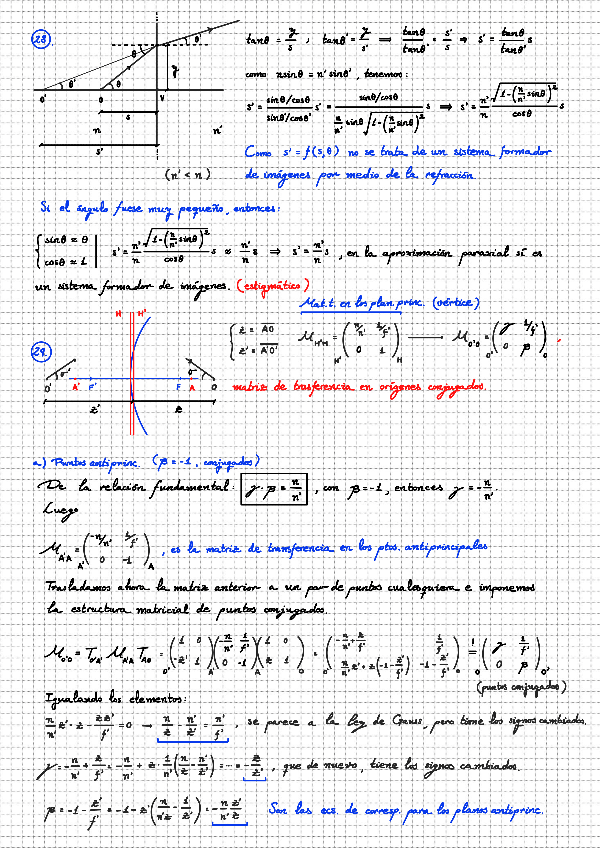 23.
tanθ = y/s ; tanθ' = y/s' ⟹ tanθ/tanθ' = s'/s ⟹ s' = tanθ/tanθ' s
como nsinθ = n'sinθ', tenemos:
s' = (sinθ/cosθ)/(sinθ'/cosθ') s' = (sinθ/cosθ)/(n/n' sinθ √(1-(n/n' sinθ)²)) s ⟹ s' = n'/n √(1-(n/n' sinθ)²)/cosθ s
θ θ' y
θ' θ
O' O V
s
n n'
s'
(n' < n)
Como s' = f(s,θ) no se trata de un sistema formador
de imágenes por medio de la refracción
Si el ángulo fuese muy pequeño, entonces:
{ sinθ ≈ θ
cosθ ≈ 1 | s' = n'/n √(1-(n/n' sinθ)²)/cosθ s ≈ n'/n s ⟹ s' = n'/n s , en la aproximación paraxial sí es
un sistema formador de imágenes. (estigmático)
Mat.t. en los plan. princ. (vértice)
24.
H H'
{ z = AO
z' = A'O'
M_H'H = (n/n' 1/f' ; 0 1) ⟶ M_O'O = (γ 1/f' ; 0 β)
O' σ' A' F' F A σ O
z' z
matriz de trasferencia en orígenes conjugados.
a) Puntos antiprinc. (β = -1 , conjugados)
De la relación fundamental: γ·β = n/n' , con β = -1, entonces γ = -n/n'.
Luego
M_A'A = (-n/n' 1/f' ; 0 -1) , es la matriz de transferencia en los ptos. antiprincipales
Trasladamos ahora la matriz anterior a un par de puntos cualesquiera e imponemos
la estructura matricial de puntos conjugados.
M_O'O = T_O'A' M_A'A T_AO = (1 0 ; -z' 1)(-n/n' 1/f' ; 0 -1)(1 0 ; z 1) = (-n/n' + z/f' 1/f' ; n/n' z' + z(-1-z'/f') -1-z'/f') = (γ 1/f' ; 0 β)
(puntos conjugados)
Igualando los elementos:
n/n' z' - z - zz'/f' = 0 → n/z - n'/z' = n'/f' , se parece a la ley de Gauss, pero tiene los signos cambiados.
γ = -n/n' + z/f' = -n/n' + z · 1/n' (n/z - n'/z') = ... = -z/z' , que de nuevo, tiene los signos cambiados.
β = -1 - z'/f' = -1 - z'(n/n'z - 1/z') = -n z'/n' z Son las ecs. de corresp. para los planos antiprinc.